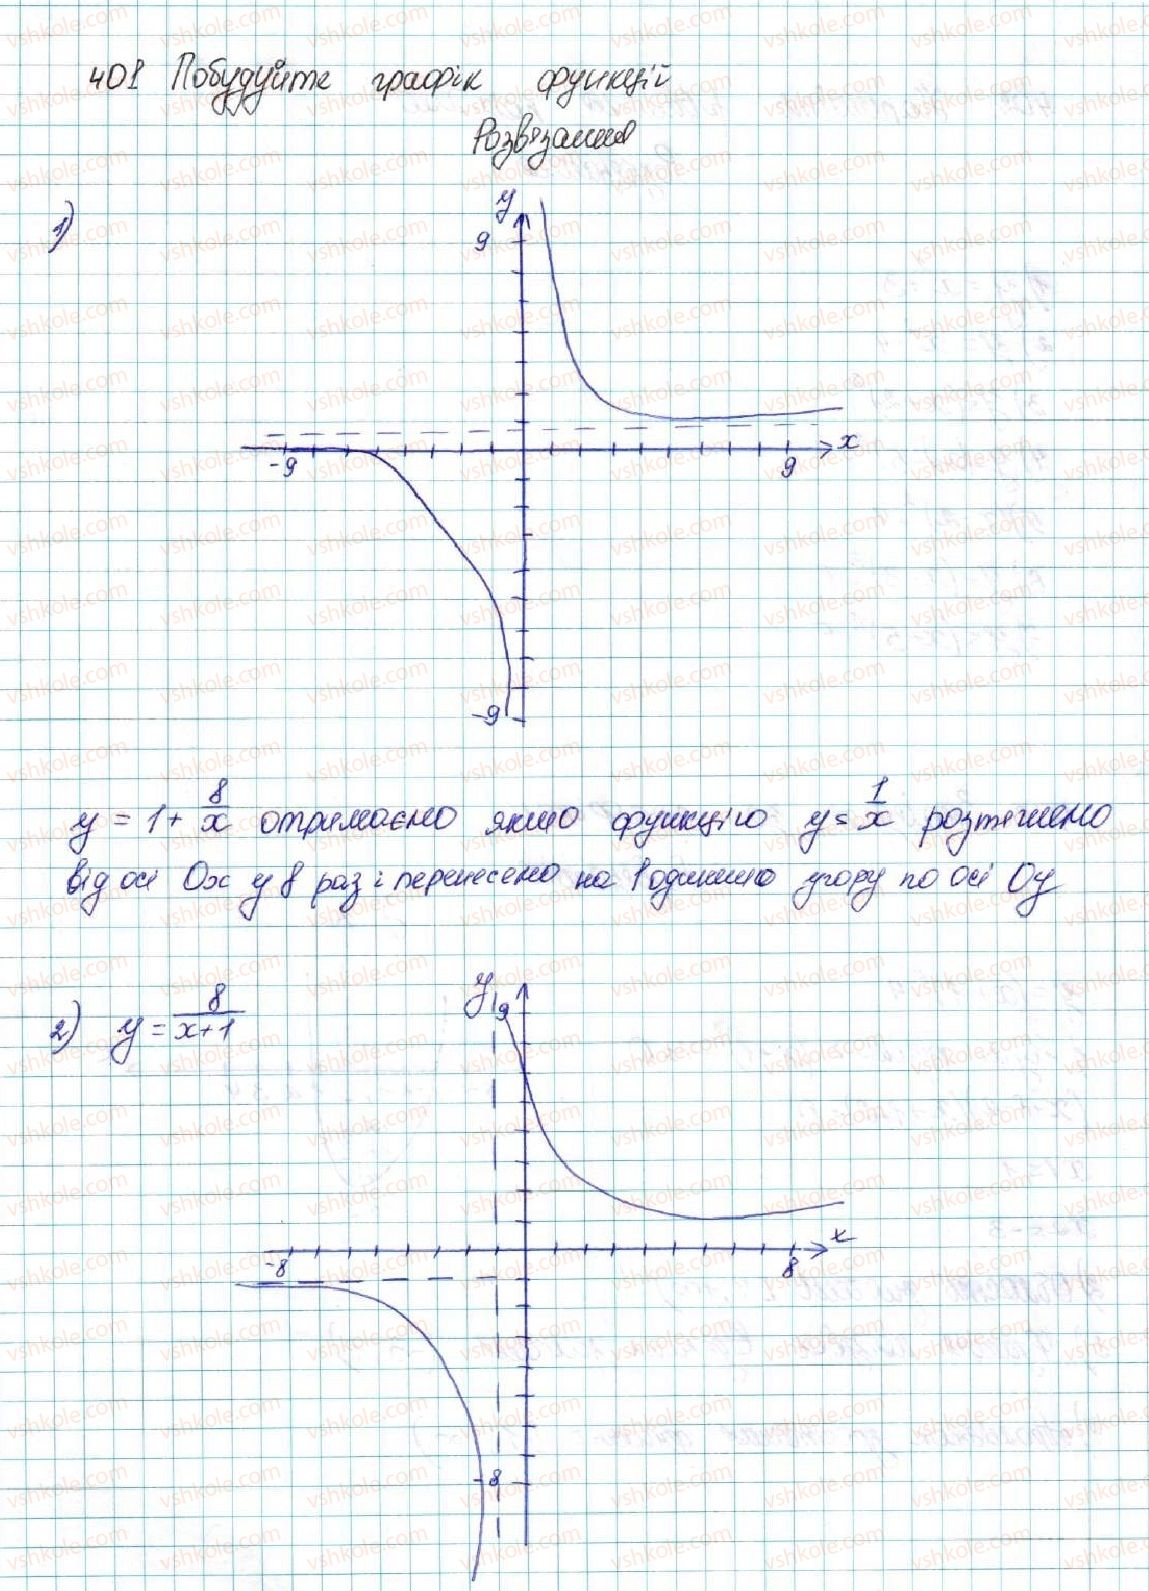 401 Побудуйте графік функцій
Розв'язання
1)
y
9
x
-9
9
-9
y = 1 + 8/x отримаємо якщо функцію y = 1/x розтягнено
від осі Ox у 8 раз і перенесено на 1 одиницю угору по осі Oy
2) y = 8/(x+1)
y
9
x
-8
8
-8